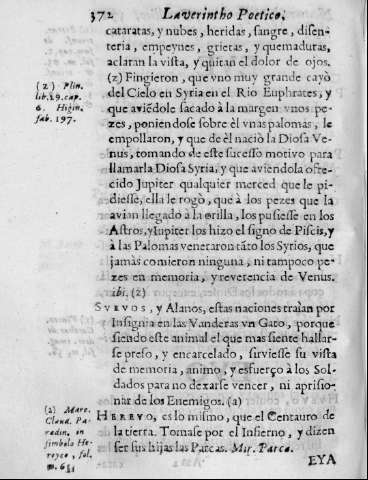 372 Laverintho Poetico.
cataratas, y nubes, heridas, sangre, disen-
teria, empeynes, grietas, y quemaduras,
aclaran la vista, y quitan el dolor de ojos.
(z) Fingieron, que vno muy grande cayò
del Cielo en Syria en el Rio Euphrates, y
que aviēdole sacado à la margen vnos pe-
zes, poniendose sobre èl vnas palomas, le
empollaron, y que de èl naciò la Diosa Ve-
nus, tomando de este sucesso motivo para
llamarla Diosa Syria, y que aviendola ofre-
cido Jupiter qualquier merced que le pi-
diesse, ella le rogò, que à los pezes que la
avian llegado à la orilla, los pusiesse en los
Astros, y Jupiter los hizo el signo de Piscis, y
à las Palomas veneraron tāto los Syrios, que
jamàs comieron ninguna, ni tampoco pe-
zes en memoria, y reverencia de Venus.
ibi. (z)
(z) Plin.
lib. 29. cap.
6. Higin.
fab. 197.
SVEVOS, y Alanos, estas naciones traìan por
Insignia en las Vanderas vn Gato, porque
siendo este animal el que mas siente hallar-
se preso, y encarcelado, sirviesse su vista
de memoria, animo, y esfuerço à los Sol-
dados para no dexarse vencer, ni aprisio-
nar de los Enemigos. (a)
(a) Marc.
Claud. Pa-
radin. en
simbolo He-
royco, fol.
m. 6
HEREVO, es lo mismo, que el Centauro de
la tierra. Tomase por el Infierno, y dizen
ser sus hijas las Parcas. Mir. Parca.
EYA